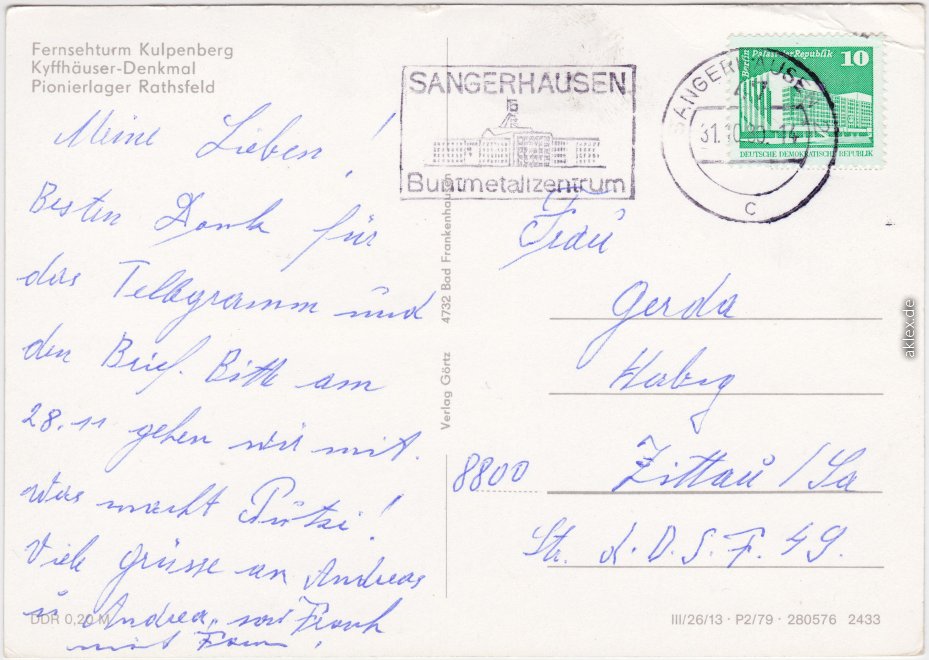 Fernsehturm Kulpenberg
Kyffhäuser-Denkmal
Pionierlager Rathsfeld
SANGERHAUSEN
Buntmetallzentrum
SANGERHAUSEN
47
31.10.80.-14
C
Berlin Palast der Republik 10
DEUTSCHE DEMOKRATISCHE REPUBLIK
Meine Lieben!
Besten Dank für
das Tellegramm und
den Brief. Bitte am
28.11 gehen wir mit.
was macht Pützi!
Viele grüsse an Andreas
u Andrea,, Frank
mit
DDR 0,20 M
Verlag Görtz 4732 Bad Frankenhausen
Frau
Gerda
8800 Zittau / Sa
Str. d. D. S. F. 49.
III/26/13 · P2/79 · 280576 2433
aklex.de